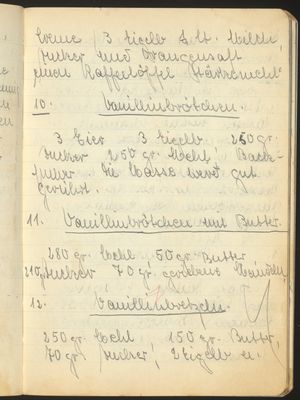 Creme 3 Eigelb ¼ lt. Milch,
Zucker und Orangensaft
einen Kaffeelöffel Stärkemehl
10. Vanillinbrötchen.
3 Eier 3 Eigelb 250 gr.
Zucker 250 gr. Mehl, Back-
pulver die Masse wird gut
gerührt.
11. Vanillinbrötchen mit Butter.
280 gr. Mehl 50 gr. Butter
210 gr. Zucker 70 gr. Mandeln,
12. Vanillinbretzeln.
250 gr. Mehl, 150 gr. Butter,
70 gr. Zucker, 2 Eigelb u.